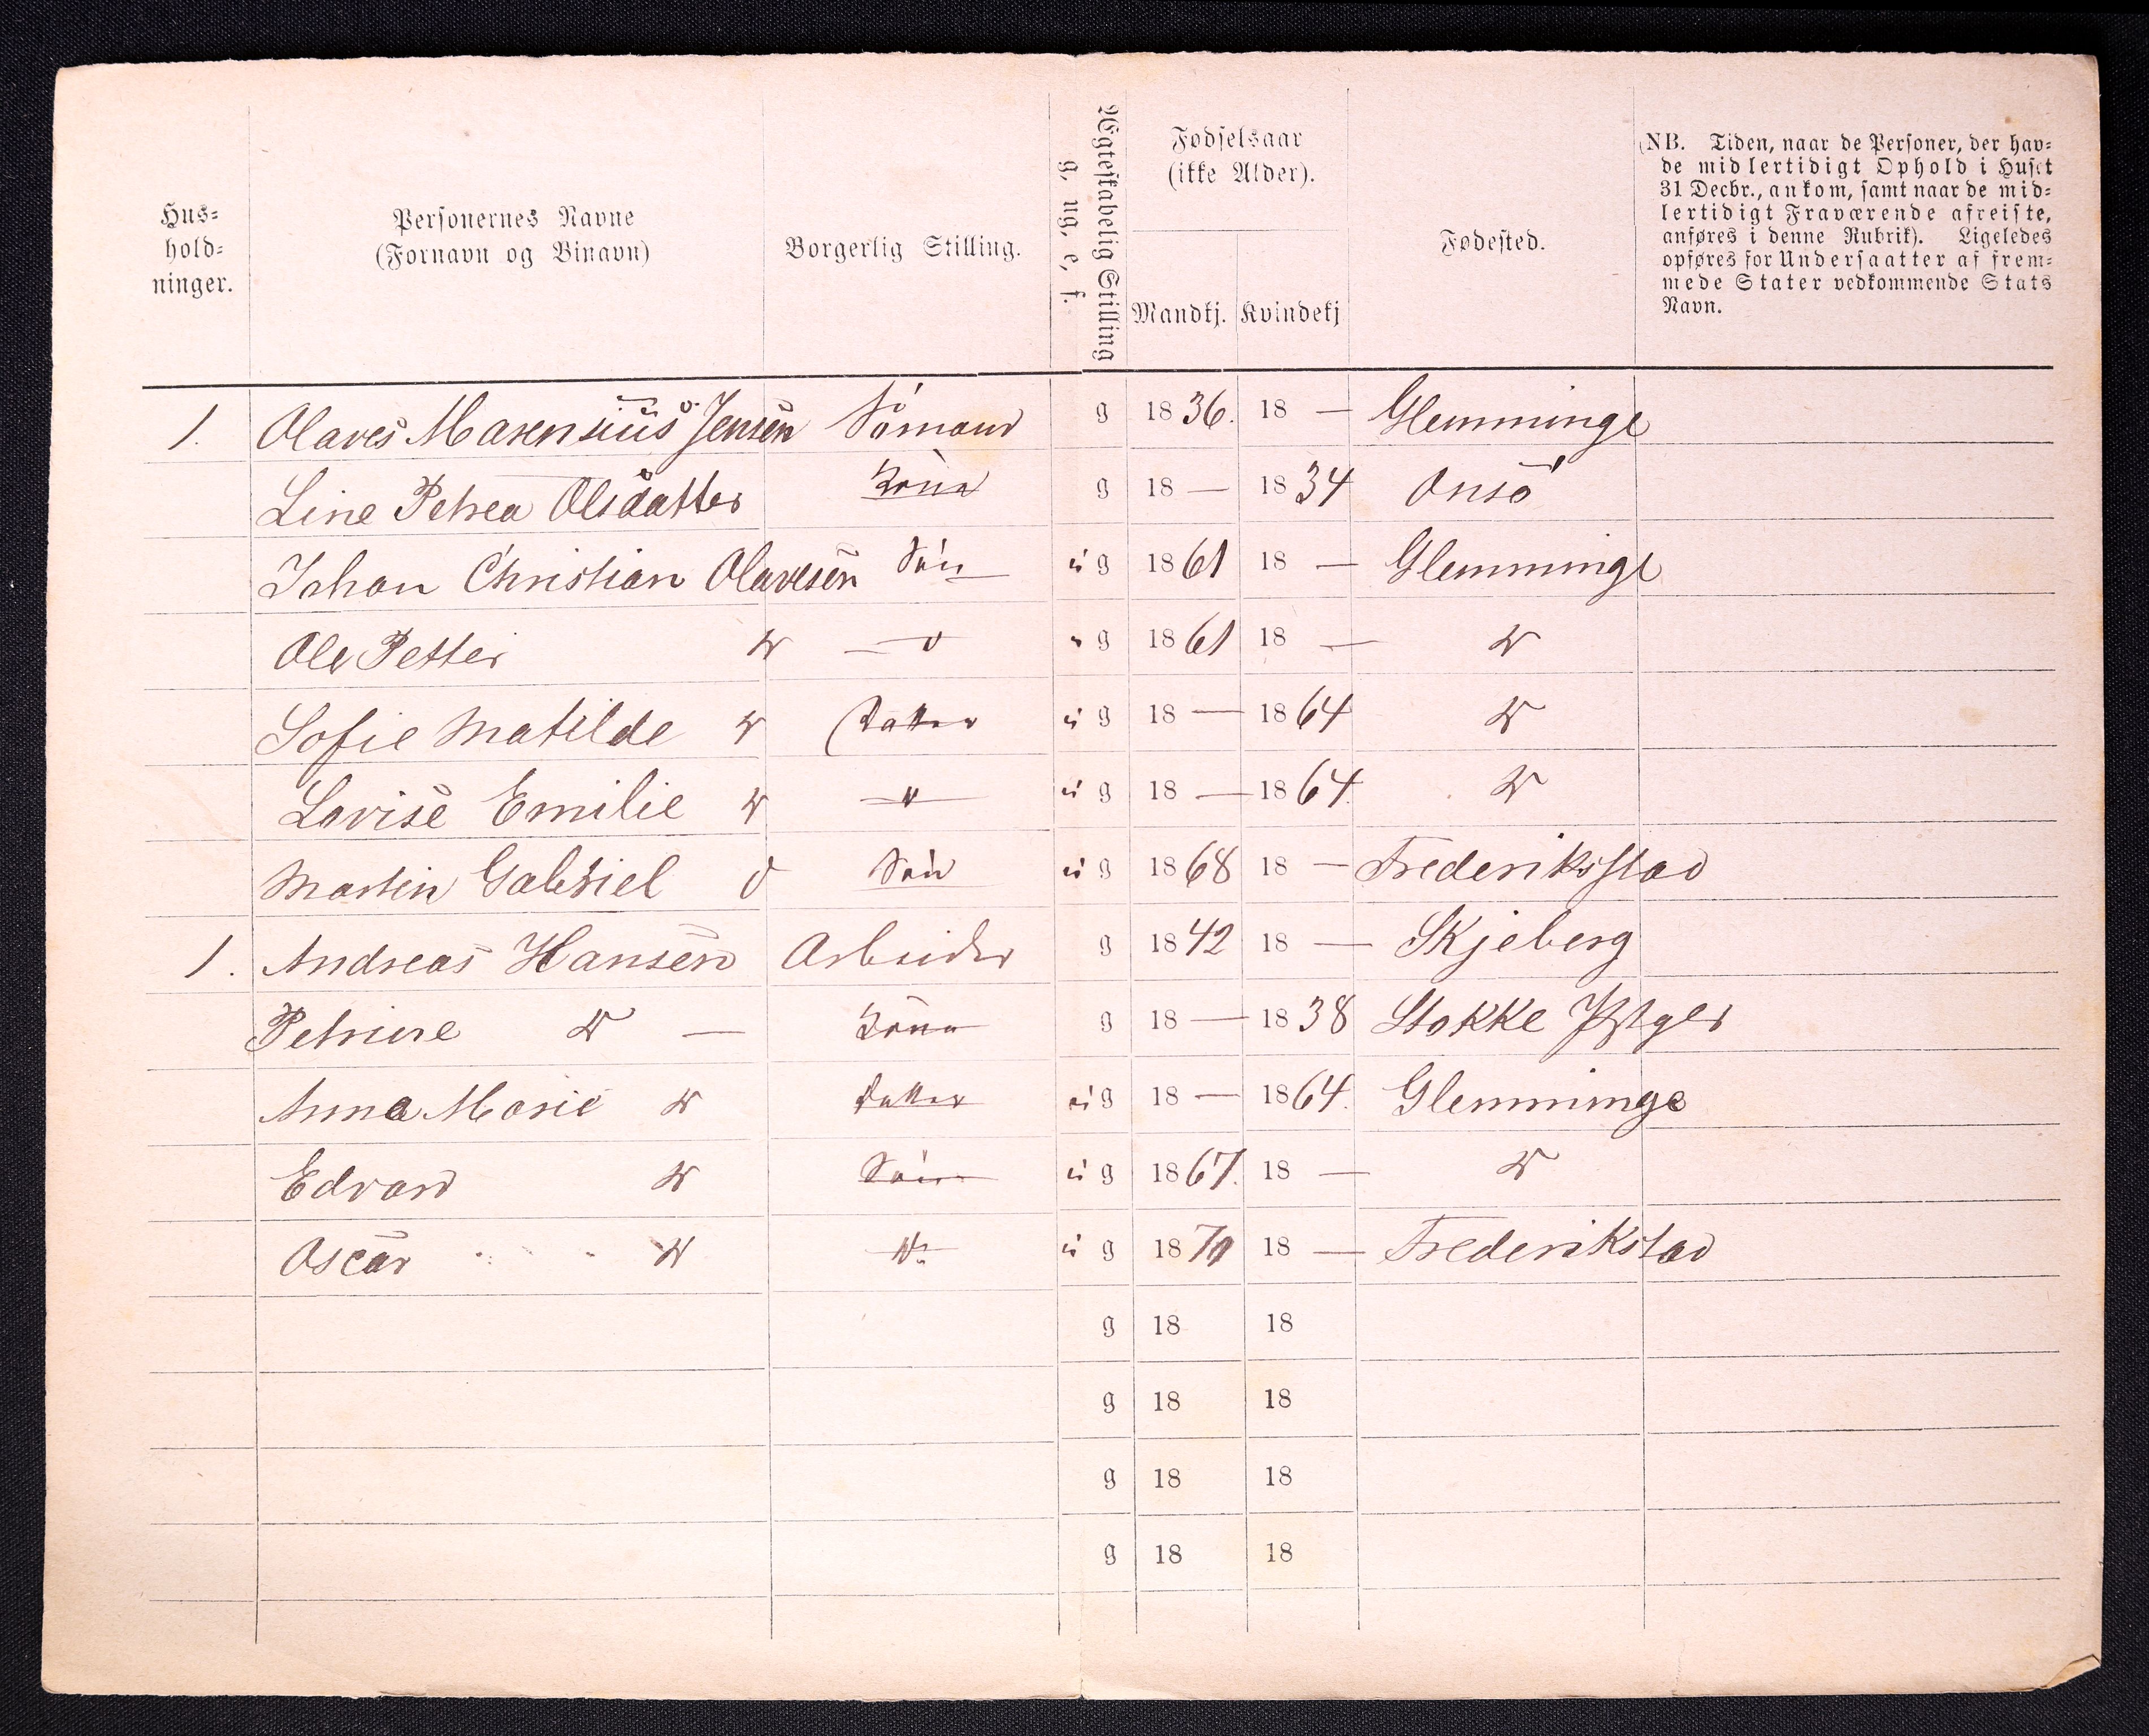 Hus=
hold=
ninger.
Personernes Navne
(Fornavn og Binavn)
Borgerlig Stilling.
Ægteskabelig Stilling
g, ug, e, f.
Fødselsaar
(ikke Alder).
Mandkj. Kvindekj
Fødested.
(NB. Tiden, naar de Personer, der hav=
de midlertidigt Ophold i Huset
31 Decbr., ankom, samt naar de mid=
lertidigt Fraværende afreiste,
anføres i denne Rubrik). Ligeledes
opføres for Undersaatter af frem=
mede Stater vedkommende Stats
Navn.
1. Olaves Marensius Jensen Sömand g 1836. 18 — Glemminge
Line Petrea Olsdatter Kona g 18 — 1834 Onsö
Johan Christian Olavesen Sön ug 1861 18 — Glemminge
Ole Petter do — " ug 1861 18 — do
Sofie Matilde do Datter ug 18 — 1864 do
Lovise Emilie do " ug 18 — 1864. do
Martin Gabriel do Sön ug 1868 18 — Frederiksstad
1. Andreas Hansen Arbeider g 1842 18 — Skjeberg
Petrine do — Kona g 18 — 1838 Stokke
Anna Marie do Datter ug 18 — 1864. Glemminge
Edvard do Sön ug 1867. 18 — do
Oscar do do ug 1870 18 — Frederikstad
g 18 18
g 18 18
g 18 18
g 18 18